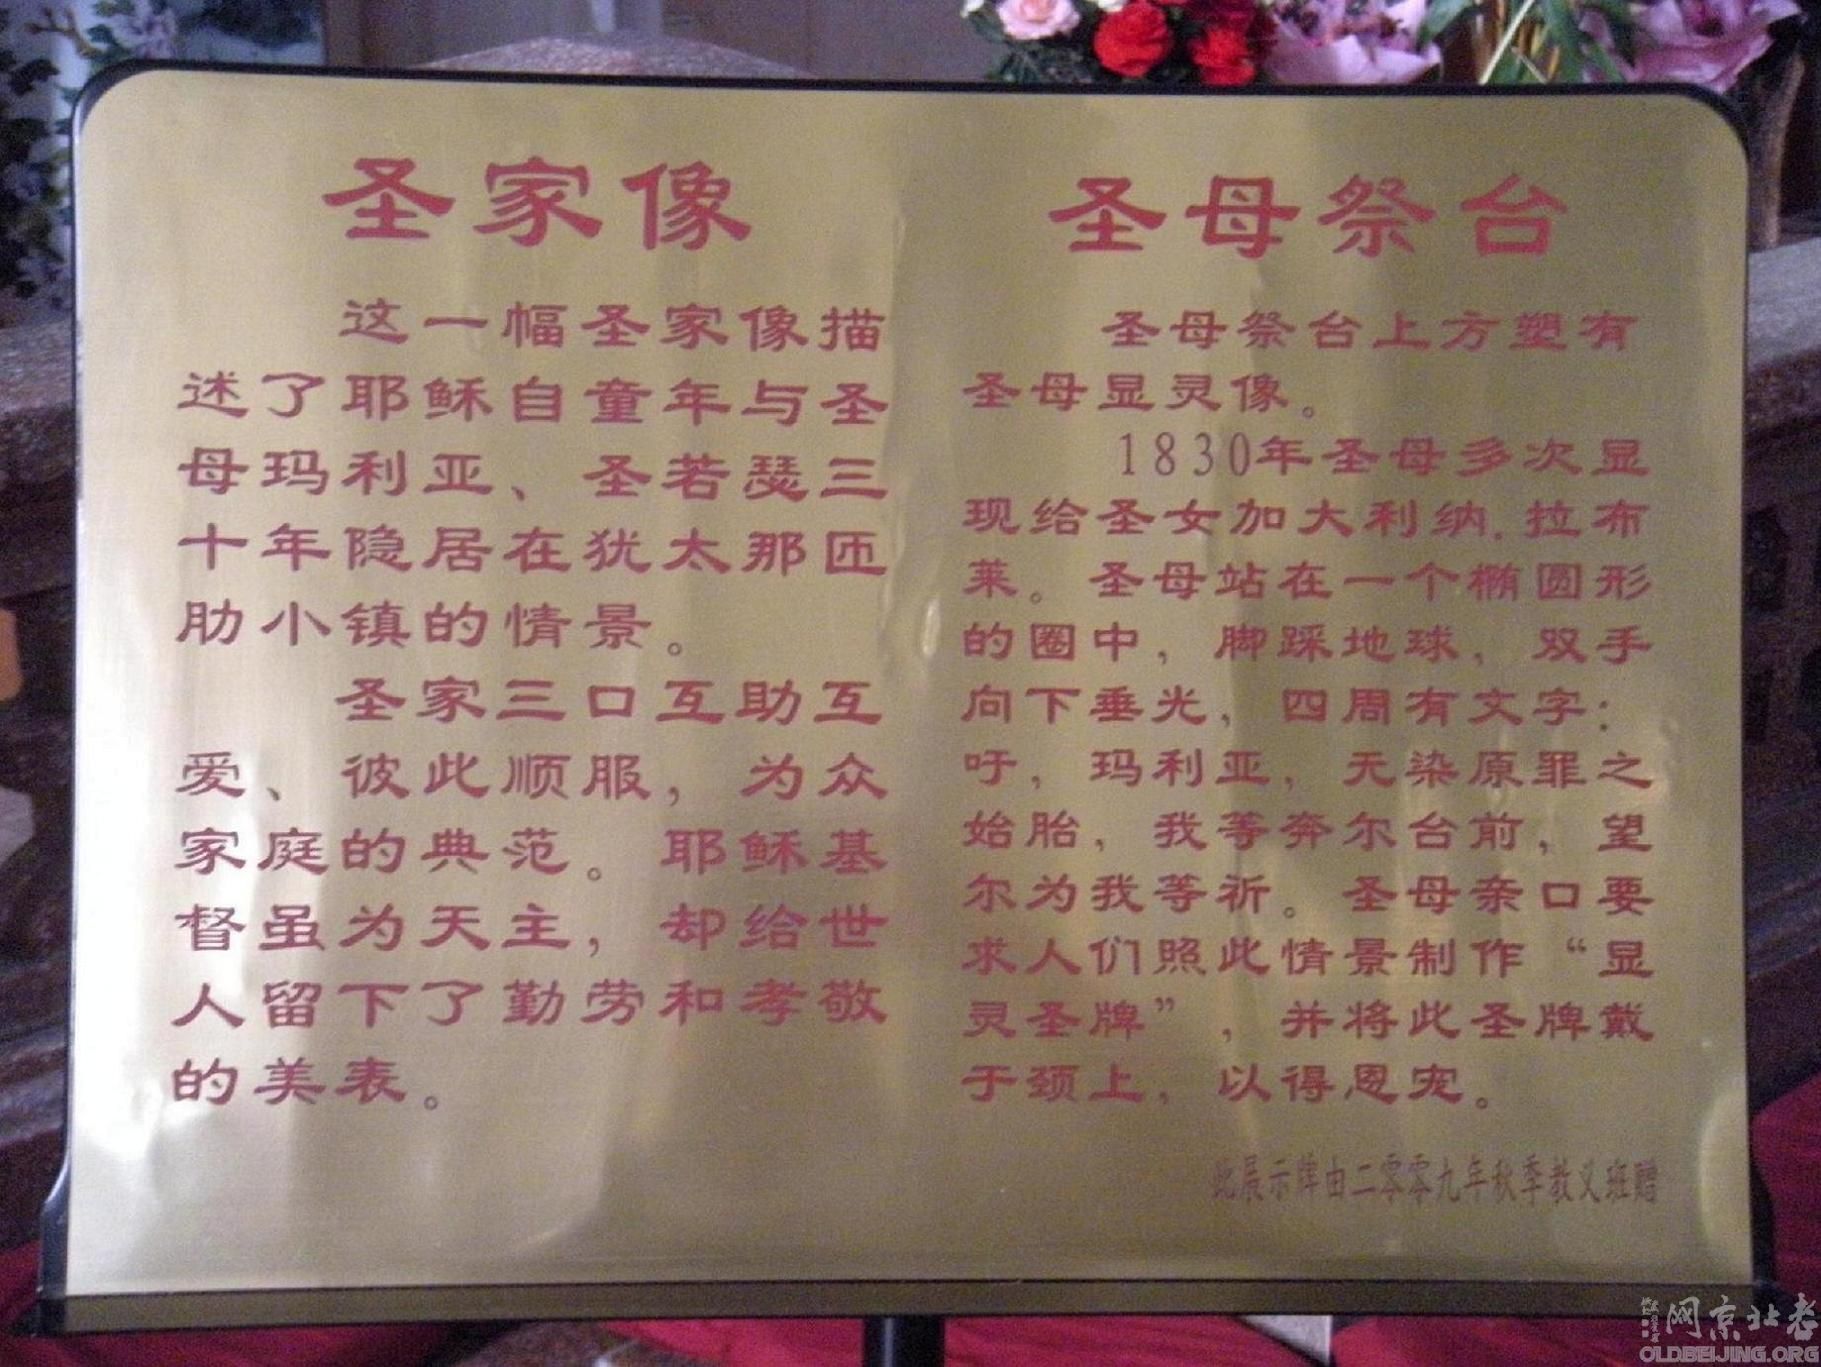 圣家像
这一幅圣家像描
述了耶稣自童年与圣
母玛利亚、圣若瑟三
十年隐居在犹太那匝
肋小镇的情景。
圣家三口互助互
爱、彼此顺服，为众
家庭的典范。耶稣基
督虽为天主，却给世
人留下了勤劳和孝敬
的美表。
圣母祭台
圣母祭台上方塑有
圣母显灵像。
1830年圣母多次显
现给圣女加大利纳.拉布
莱。圣母站在一个椭圆形
的圈中，脚踩地球，双手
向下垂光，四周有文字：
吁，玛利亚，无染原罪之
始胎，我等奔尔台前，望
尔为我等祈。圣母亲口要
求人们照此情景制作“显
灵圣牌”，并将此圣牌戴
于颈上，以得恩宠。
此展示牌由二零零九年秋季教义班赠
网京北老
OLDBEIJING.ORG